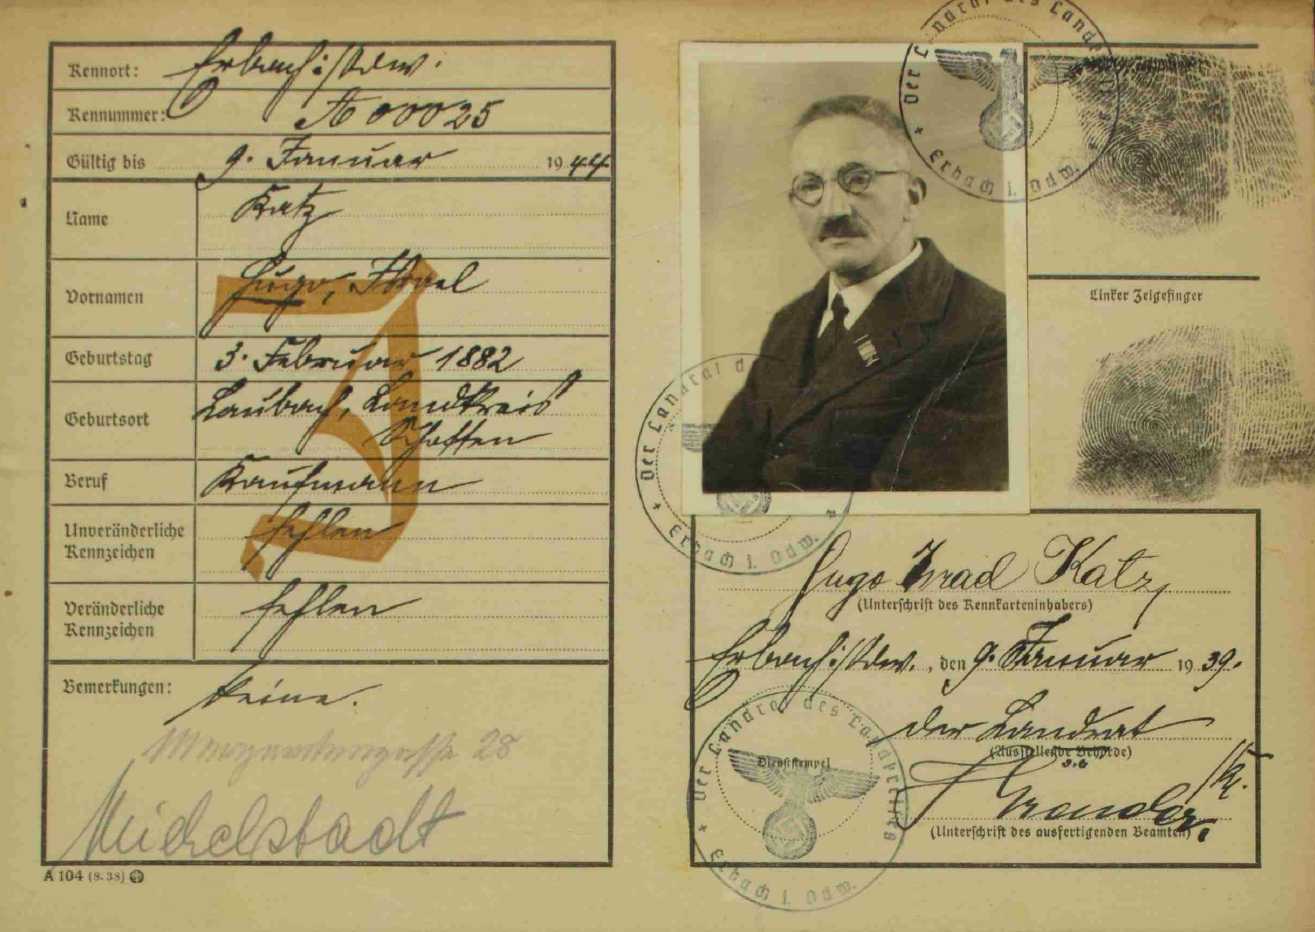 Kennort: Erbach i/Odw.
Kennummer: A 00025
Gültig bis 9. Januar 1944
Name Katz
Vornamen Hugo, Israel
Geburtstag 3. Februar 1882
Geburtsort Laubach, Landkreis
Schotten
Beruf Kaufmann
Unveränderliche
Kennzeichen fehlen
Veränderliche
Kennzeichen fehlen
Bemerkungen: keine.
28
Michelstadt
A 104 (8. 38)
J
Der Landrat des Landkreises
Erbach i. Odw.
Linker Zeigefinger
Der Landrat d
Erbach i. Odw.
Hugo Israel Katz
(Unterschrift des Kennkarteninhabers)
Erbach i/Odw., den 9. Januar 1939.
Der Landrat
(Ausstellende Behörde)
Dienststempel
Der Landrat des Landkreises
Erbach i. Odw.
(Unterschrift des ausfertigenden Beamten)